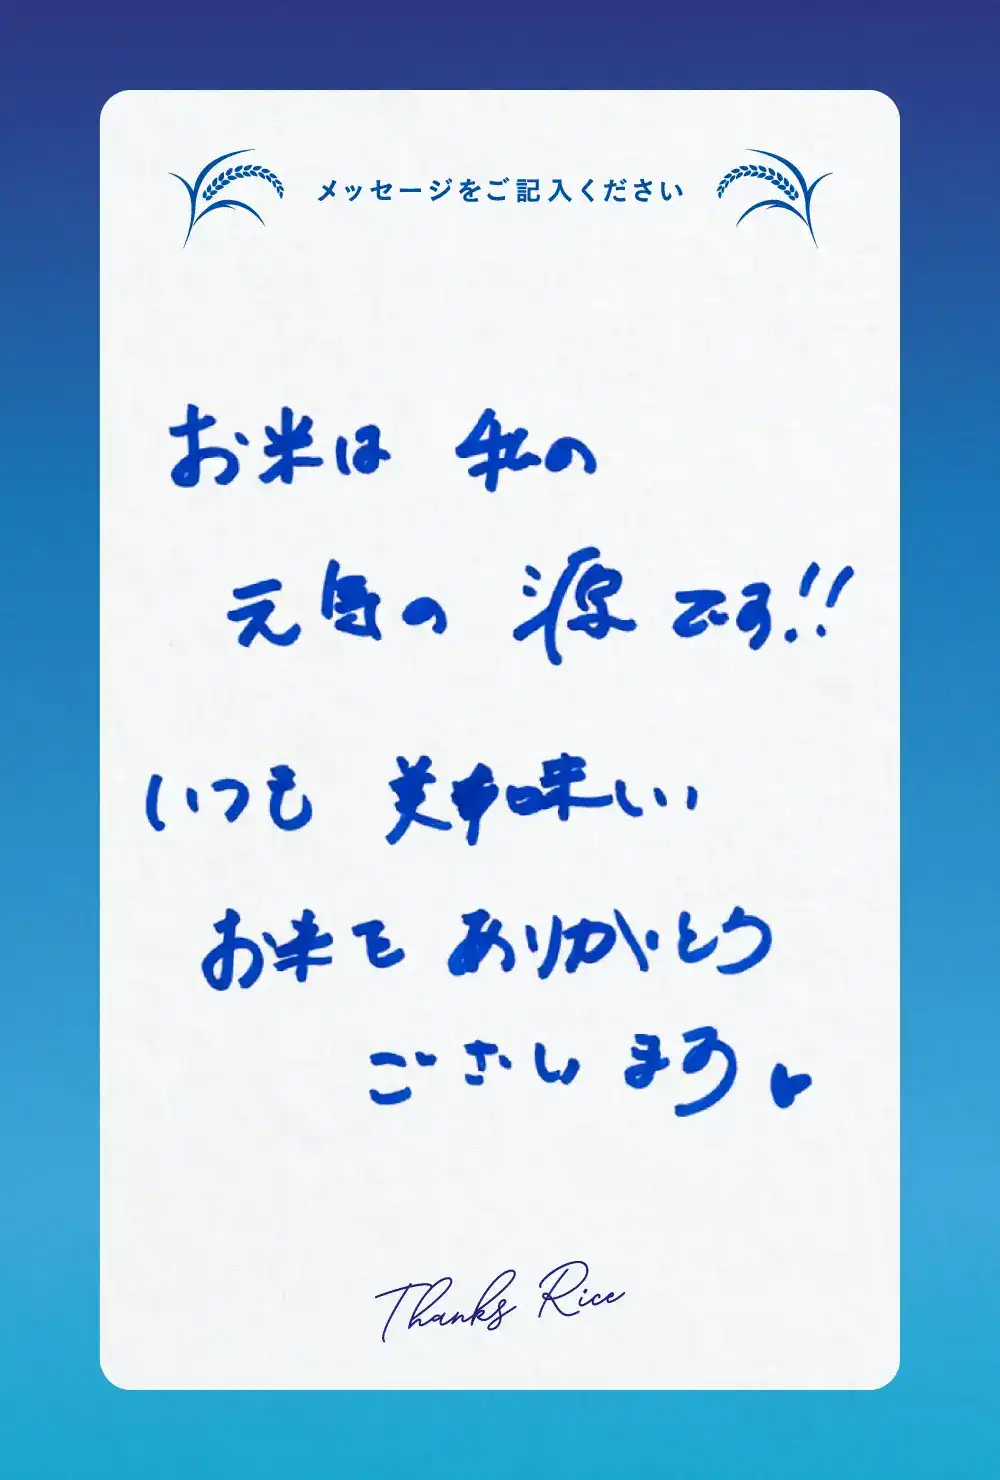 メッセージをご記入ください
お米は 私の
元気の 源です!!
いつも 美味しい
お米を ありがとう
ございます♥
Thanks Rice